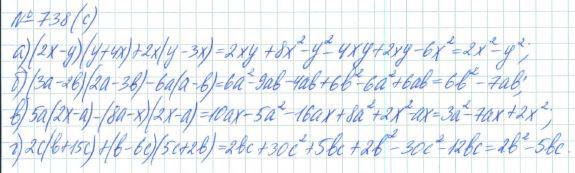 № 738 (с)
а) (2x-y)(y+4x)+2x(y-3x)=2xy+8x²-y²-4xy+2xy-6x²=2x²-y²;
б) (3a-2b)(2a-3b)-6a(a-b)=6a²-9ab-4ab+6b²-6a²+6ab=6b²-7ab;
в) 5a(2x-a)-(8a-x)(2x-a)=10ax-5a²-16ax+8a²+2x²-ax=3a²-7ax+2x²;
г) 2c(b+15c)+(b-6c)(5c+2b)=2bc+30c²+5bc+2b²-30c²-12bc=2b²-5bc.